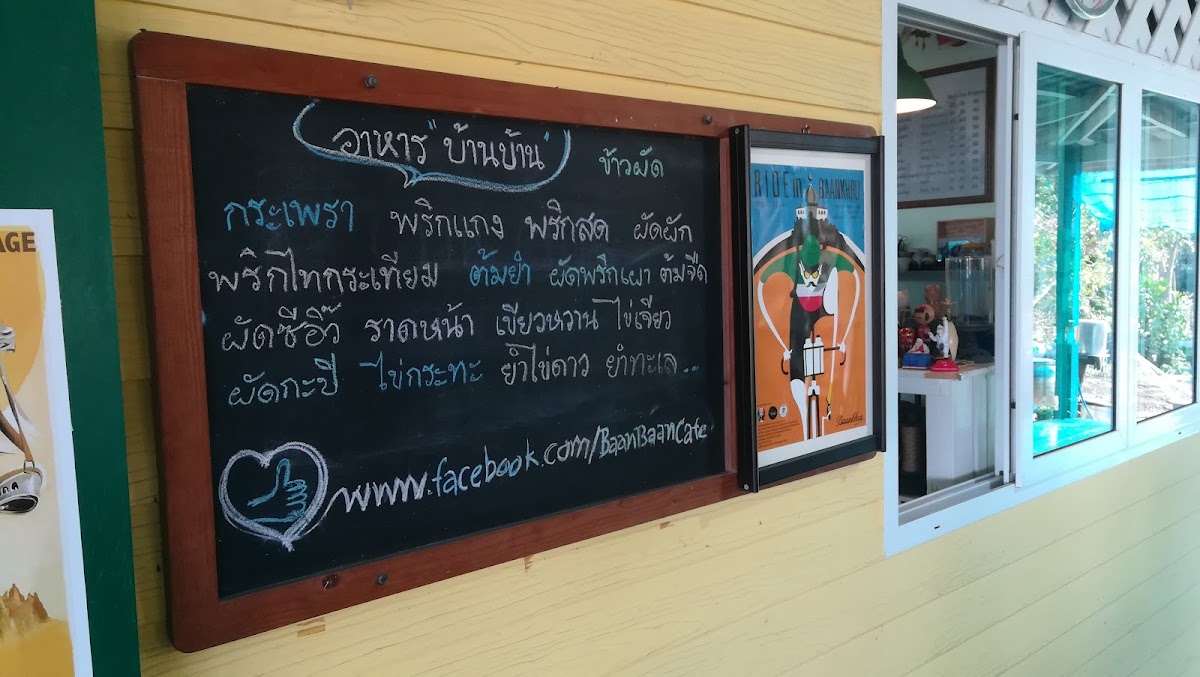 อาหาร "บ้านบ้าน" ข้าวผัด
กระเพรา พริกแกง พริกสด ผัดผัก
พริกไทกระเทียม ต้มยำ ผัดพริกเผา ต้มจืด
ผัดซีอิ๊ว ราดหน้า เขียวหวาน ไข่เจียว
ผัดกะปิ ไข่กระทะ ยำไข่ดาว ยำทะเล..
www.facebook.com/BaanBaanCafe
RIDE in BAANKHRU
AGE